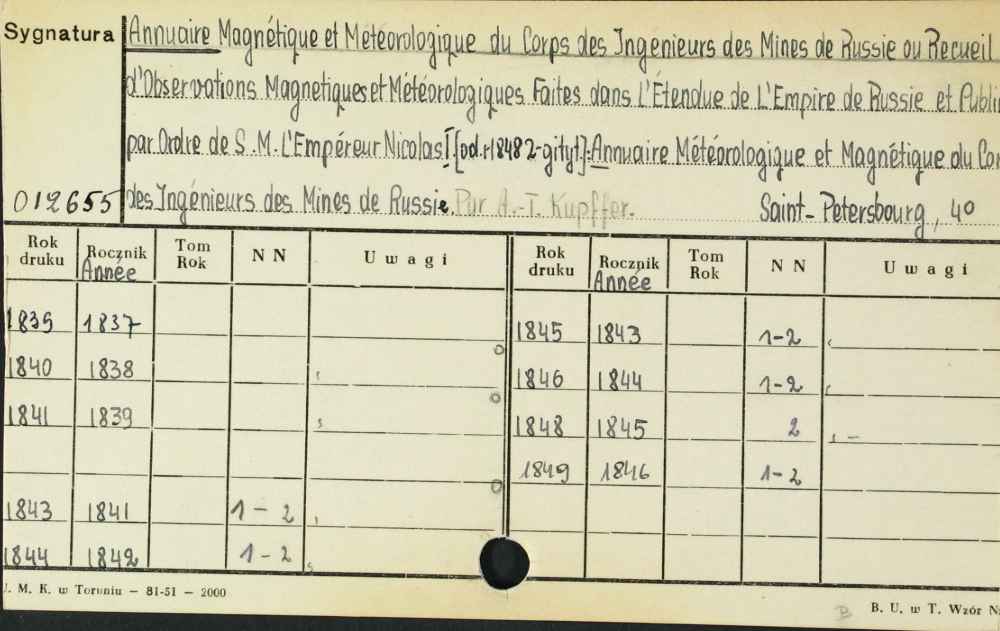 Sygnatura
Annuaire Magnétique et Météorologique du Corps des Ingénieurs des Mines de Russie ou Recueil
d'Observations Magnetiques et Météorologiques Faites dans L'Étendue de L'Empire de Russie et Publi
par Ordre de S.M. L'Empéreur Nicolas I [od.r1848 2-gi tyt]: Annuaire Météorologique et Magnétique du Co
012655 des Ingénieurs des Mines de Russie. Par A.-T. Kupffer. Saint-Petersbourg, 4o
Rok druku Rocznik Année Tom Rok NN Uwagi Rok druku Rocznik Année Tom Rok NN Uwagi
1839 1837 1845 1843 1-2
1840 1838 1846 1844 1-2
1841 1839 1848 1845 2 -
1849 1846 1-2
1843 1841 1-2
1844 1842 1-2
J. M. K. w Toruniu — 81-51 — 2000
B B. U. w T. Wzór N